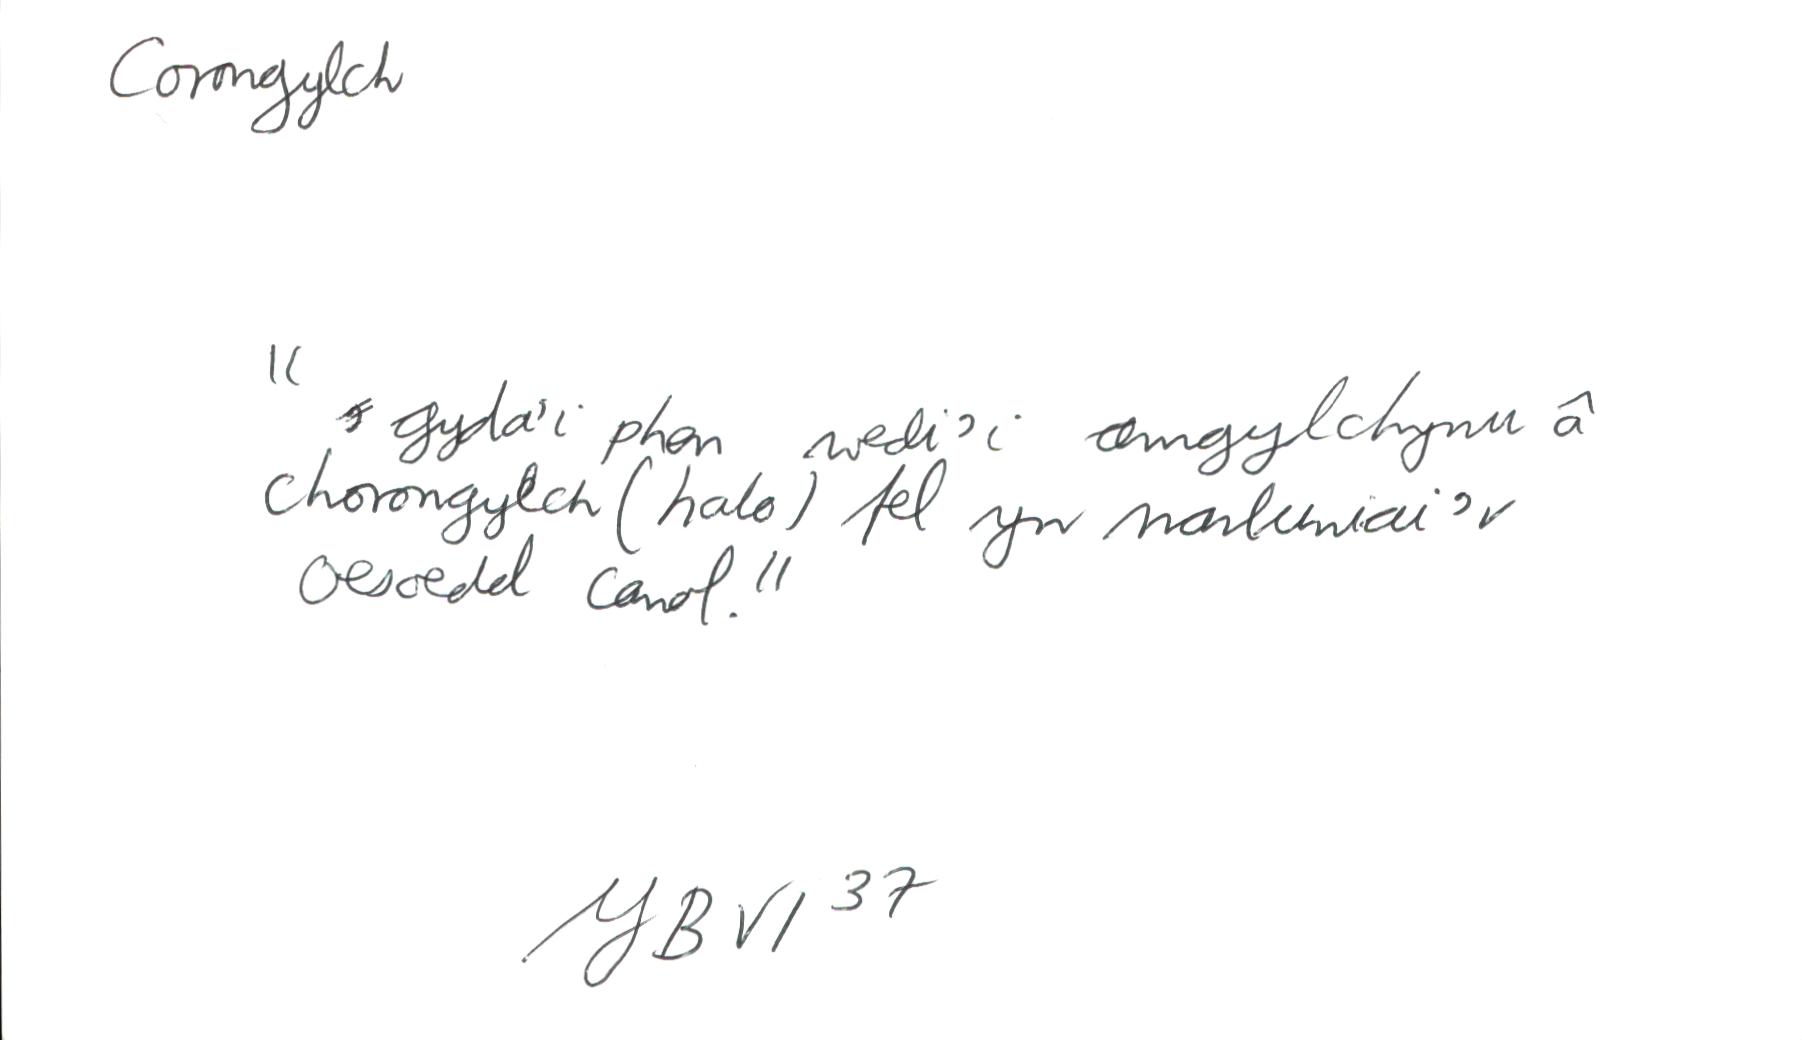 Corongylch
"
gyda'i phen wedi'i amgylchynu â
chorongylch (halo) fel yn narluniau'r
oesoedd canol."
YB VI 37